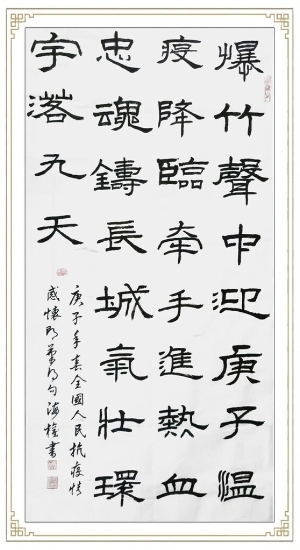 爆竹聲中迎庚子溫
疫降臨牽手進熱血
忠魂鑄長城氣壯環
宇落九天
庚子年春全國人民抗疫情
感懷 句海 書